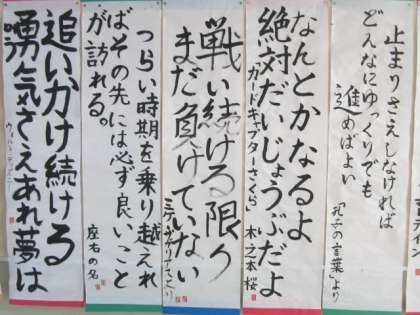 止まりさえしなければ
どんなにゆっくりでも
進めばよい
「孔子の言葉」より
なんとかなるよ
絶対だいじょうぶだよ
「カードキャプターさくら」 木之本桜
戦い続ける限り
まだ負けていない
つらい時期を乗り越えれ
ばその先には必ず良いこと
が訪れる。
座右の名
追いかけ続ける
勇気さえあれ夢は
ウォルト・ディズニー